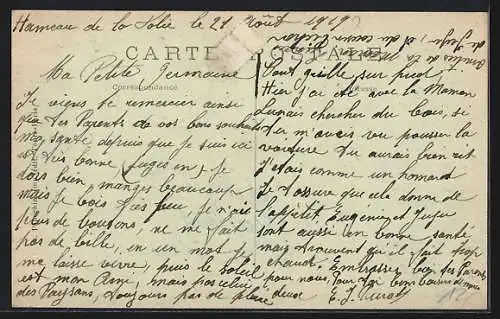 Hameau de la Folie le 21 Août 1919
CARTE POSTALE
Correspondance
Ma Petite Germaine
Je viens te remercier ainsi
que tes Parents de vos bons souhaits
ma santé depuis que je suis ici
est très bonne juges en, je
dors bien, manges beaucoup
mais je bois très peu, je n'ai
plus de boutons, ne me fait
pas de bile, en un mot je
me laisse vivre, puis le soleil
est mon Ami, mais pas celui
des Paysans, toujours pas de pluie
tout grillé sur pied,
Hier j'ai été avec la Maman
chercher du bois, si
tu m'avais vu pousser la
voiture tu aurais bien rit
J'étais comme un homard
Je t'assure que cela donne de
l'appétit, Eugénie et
sont aussi en bonne santé
mais trouvent qu'il fait trop
chaud. Embrasses bien tes Parents
pour nous, Pour toi bons baisers de nous
deux